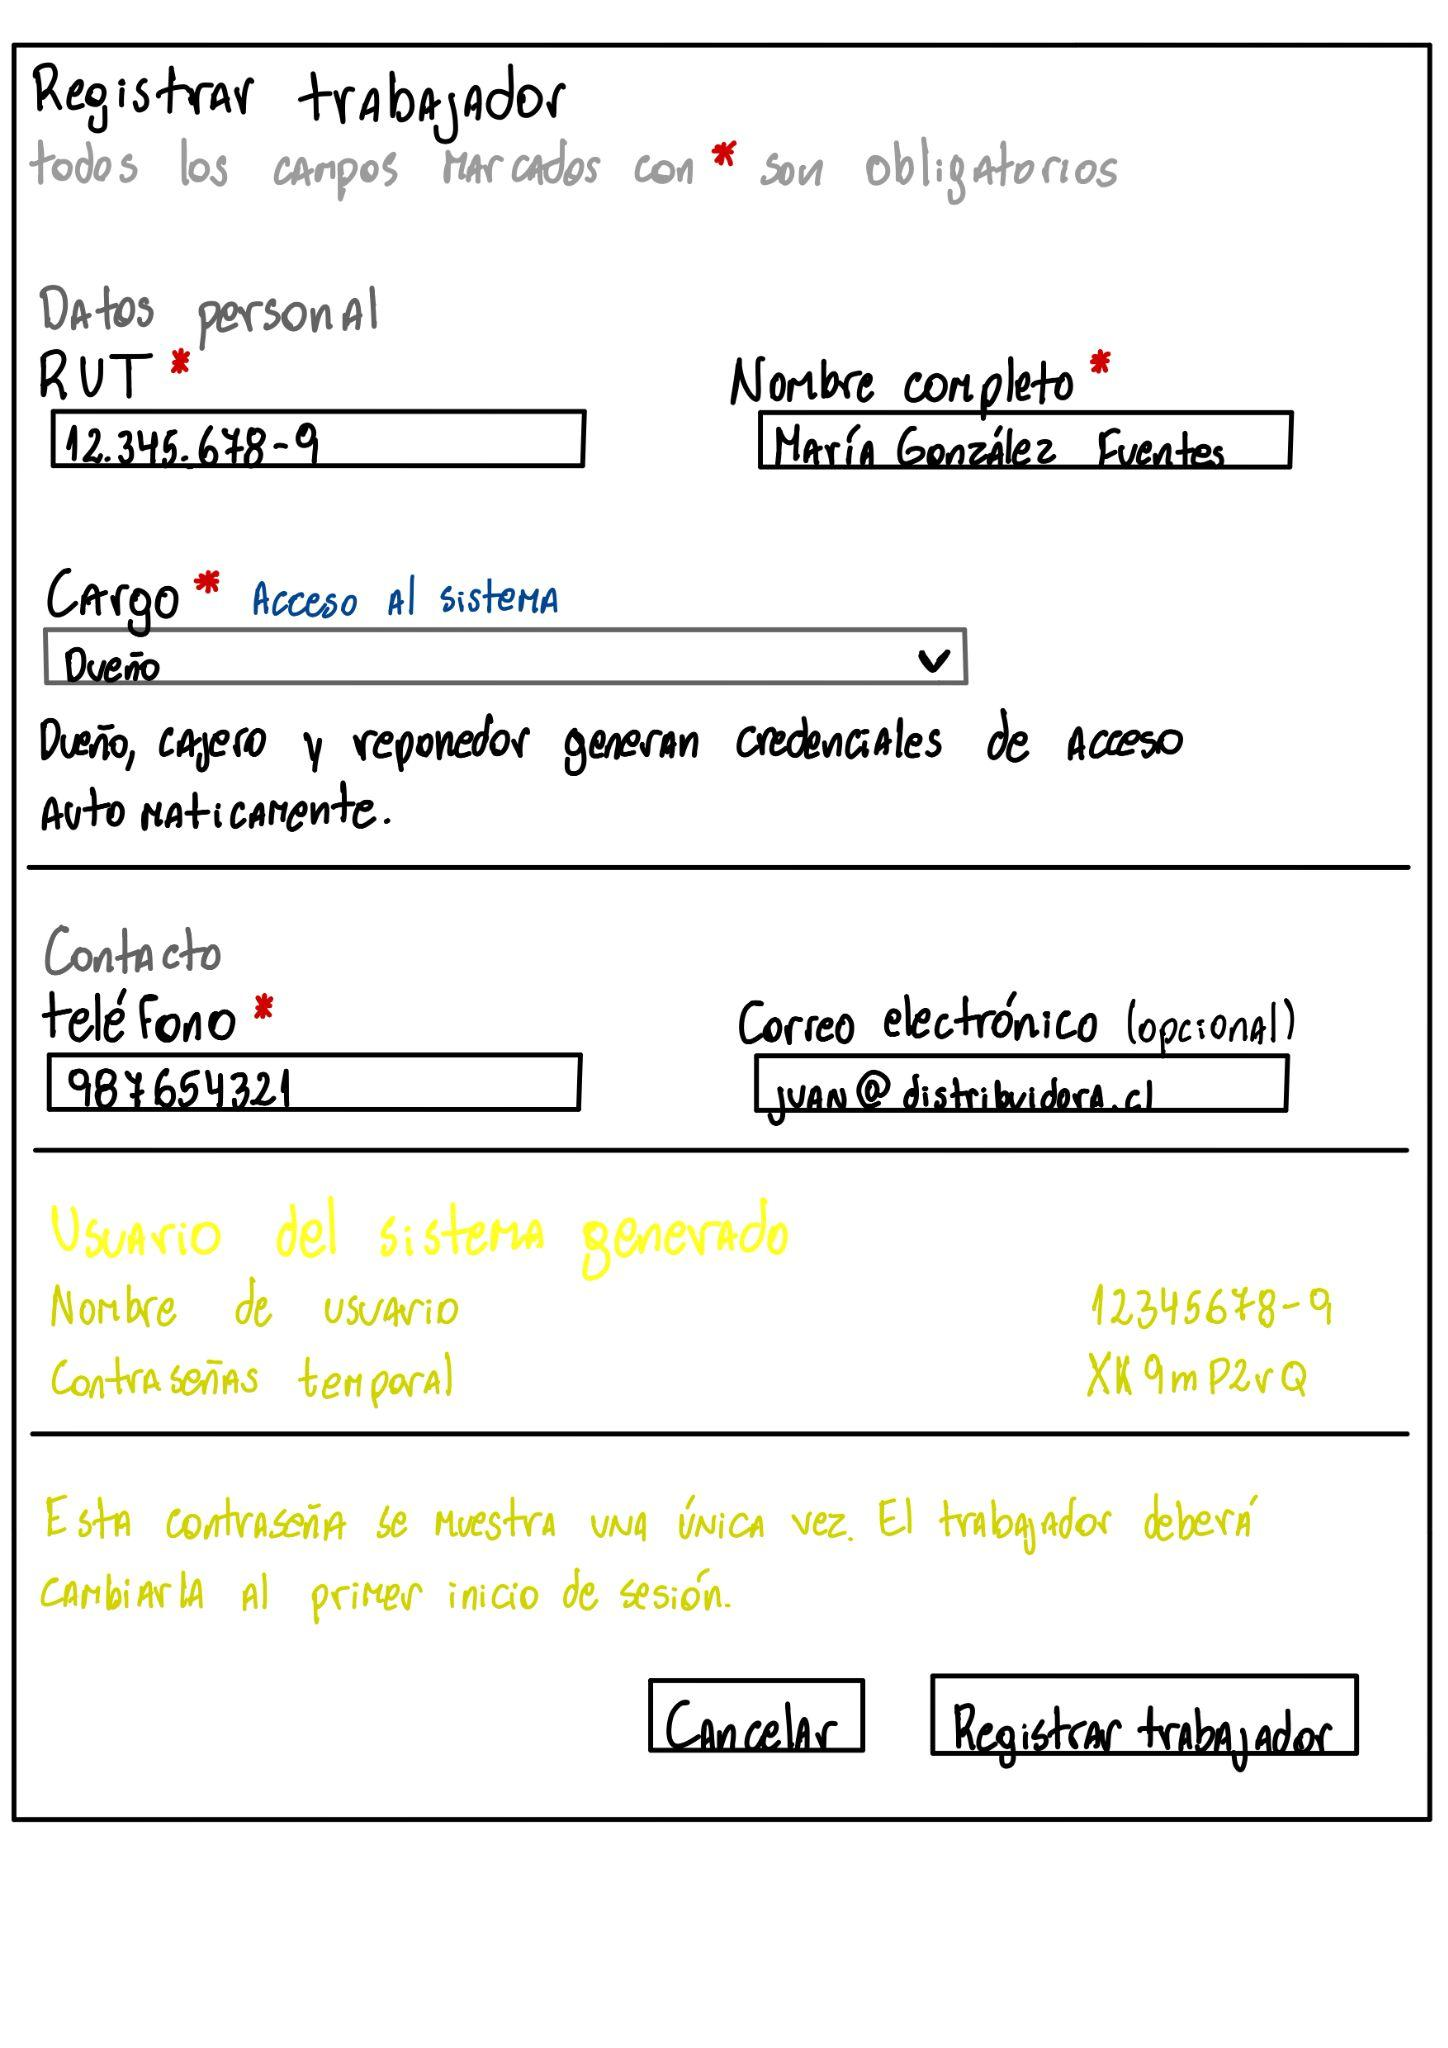 Registrar trabajador
todos los campos marcados con * son obligatorios
Datos personal
RUT *
Nombre completo *
12.345.678-9
María González Fuentes
Cargo * Acceso al sistema
Dueño
Dueño, cajero y reponedor generan credenciales de acceso
automaticamente.
Contacto
teléfono *
Correo electrónico (opcional)
987654321
juan@distribuidora.cl
Usuario del sistema generado
Nombre de usuario 12345678-9
Contraseñas temporal XK9mP2rQ
Esta contraseña se muestra una única vez. El trabajador deberá
cambiarla al primer inicio de sesión.
Cancelar
Registrar trabajador